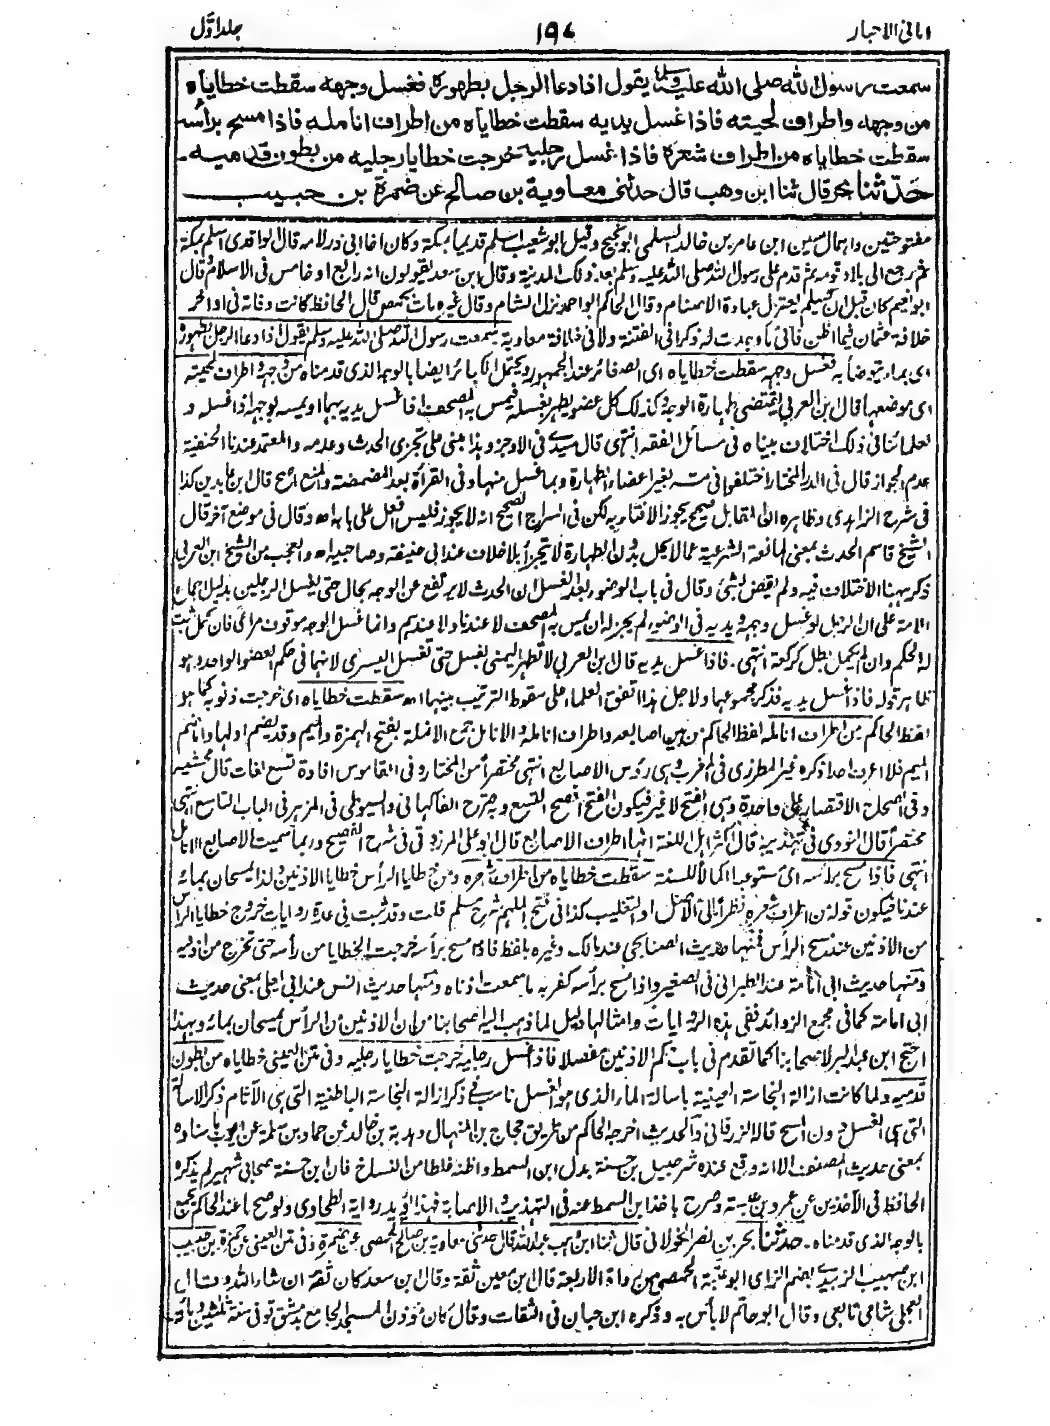 امانی الاحبار ١٩٤ جلد اوّل
سمعت رسول الله صلى الله عليه وسلم يقول اذا دعا الرجل بطهوره فغسل وجهه سقطت خطاياه
من وجهه واطراف لحيته فاذا غسل يديه سقطت خطاياه من اطراف انامله فاذا مسح برأسه
سقطت خطاياه من اطراف شعره فاذا غسل رجليه خرجت خطايا رجليه من بطون قدميه۔
حدّثنا بحر قال ثنا ابن وهب قال حدثنى معاوية بن صالح عن ضمرة بن حبيب
مفتوحتين واهمال سين ابن عامر بن خالد السلمى ابو نجيح وقيل ابو شعيب اسلم قديما بمكة وكان اخا ابى ذر لامه قال الواقدى اسلم بمكة
ثم رجع الى بلاد قومه ثم قدم على رسول الله صلى الله عليه وسلم بعد ذلك المدينة وقال ابن سعد يقولون انه رابع او خامس فى الاسلام قال
ابو نعيم كان قبل ان يسلم يعتزل عبادة الاصنام وقال الحاكم ابو احمد نزل الشام وقال غيره مات بحمص قال الحافظ كانت وفاته فى اواخر
خلافة عثمان فيما اظن فانى ما وجدت له ذكرا فى الفتنة ولا فى خلافة معاوية سمعت رسول الله صلى الله عليه وسلم يقول اذا دعا الرجل بطهوره
اى بماء يتوضأ به فغسل وجهه سقطت خطاياه اى الصغائر عند الجمهور ويحتمل الكبائر ايضا بالوجه الذى قدمناه من وجهه واطراف لحيته
اى موضعها قال ابن العربى يقتضى طهارة الوجه وكذلك كل عضو يطهر بغسله فيمس به المصحف اذا غسل يديه بهما ويمسه بوجهه اذا غسله و
لعلمائنا فى ذلك اختلاف بيناه فى مسائل الفقه انتهى قال سيدى فى الاوجز وهذا مبنى على تجزى الحدث وعدمه والمعتمد عندنا الحنفية
عدم الجواز قال فى الدر المختار اختلفوا فى مسه بغير اعضاء الطهارة وبما غسل منها وفى القراءة بعد المضمضة والمنع اصح قال ابن عابدين كذا
فى شرح الزاهدى وظاهره ان المقابل صحيح يجوز الافتاء به لكن فى السراج الصحيح انه لا يجوز فليس افعل على بابه اه وقال فى موضع آخر قال
الشيخ قاسم الحدث بمعنى المانعة الشرعية عما لا يحل بدون الطهارة لا يتجزأ بلا خلاف عند ابى حنيفة وصاحبيه اه والعجب من الشيخ ابن العربى
ذكر ههنا الاختلاف فيه ولم يقض بشئ وقال فى باب الوضوء بعد الغسل ان الحدث لا يرتفع عن الوجه بحال حتى يغسل الرجلين بدليل اجماع
الامة على ان الرجل لو غسل وجهه ويديه فى الوضوء لم يجز له ان يمس به المصحف لا عندنا ولا عندكم وانما غسل الوجه موقوف مراعى فان كمل ثبت
له الحكم وان لم يكمل بطل كركعة انتهى۔ فاذا غسل يديه قال ابن العربى لا تطهر اليمنى بغسل حتى تغسل اليسرى لانهما فى حكم العضو الواحد وهو
ظاهر قوله فاذا غسل يديه فذكر مجموعهما ولاجل هذا اتفق العلماء على سقوط الترتيب بينهما اه سقطت خطاياه اى خرجت ذنوبه كما هو
لفظ الحاكم من اطراف انامله لفظ الحاكم من بين اصابعه واطراف انامله والانامل جمع الانملة بفتح الهمزة والميم وقد يضم اولها واما ضم
الميم فلا اعرف احدا ذكره غير المطرزى فى المغرب وهى رؤس الاصابع انتهى مختصرا من المختار وفى القاموس افادة تسع لغات قال محشيه
وفى الصحاح الاقتصار على واحدة وهى الفتح لا غير فيكون الفتح افصح التسع وبه صرح الفاكهانى والسيوطى فى المزهر فى الباب التاسع انتهى
مختصرا قال النووى فى تهذيبه قال اكثر اهل اللغة انها اطراف الاصابع قال ابو على المرزوقى فى شرح الفصيح وربما سميت الاصابع الانامل
انتهى فاذا مسح برأسه اى مستوعبا اكمالا للسنة سقطت خطاياه من اطراف شعره ومن خطايا الرأس خطايا الاذنين ولذا يمسحان بمائه
عندنا فيكون قوله من اطراف شعره نظرا الى الاصل او التغليب كذا فى فتح الملهم شرح مسلم قلت وقد ثبت فى عدة روايات خروج خطايا الراس
من الاذنين عند مسح الرأس فمنها حديث الصنابحى عند مالك وغيره بلفظ فاذا مسح برأسه خرجت الخطايا من رأسه حتى تخرج من اذنيه
ومنها حديث ابى امامة عند الطبرانى فى الصغير واذا مسح برأسه كفر به ما سمعت اذناه ومنها حديث انس عند ابى يعلى بمعنى حديث
ابى امامة كما فى مجمع الزوائد ففى هذه الروايات وامثالها دليل لما ذهب اليه اصحابنا من ان الاذنين من الرأس يمسحان بمائه وبهذا
احتج ابن عبد البر لاصحابنا كما تقدم فى باب حكم الاذنين مفصلا فاذا غسل رجليه خرجت خطايا رجليه وفى متن العينى خطاياه من بطون
قدميه ولما كانت ازالة النجاسة العينية باسالة الماء الذى هو الغسل ناسب فى ذكر ازالة النجاسة الباطنية التى هى الآثام ذكر الاسالة
التى هى الغسل دون المسح قاله الزرقانى والحديث اخرجه الحاكم من طريق حجاج بن المنهال وهدبة بن خالد عن حماد بن سلمة عن ايوب باسناده
بمعنى حديث المصنف الا انه وقع عنده شرحبيل بن حسنة بدل ابن السمط واظنه غلطا من النساخ فان ابن حسنة صحابى شهير لم يذكره
الحافظ فى الآخذين عن عمرو بن عبسة وصرح باخذ ابن السمط عنه فى التهذيب والاصابة فهذا يؤيد رواية الطحاوى ولو صح ما عند الحاكم يجمع
بالوجه الذى قدمناه۔ حدثنا بحر بن نصر الخولانى قال ثنا ابن وهب عبد الله قال حدثنى معاوية بن صالح الحمصى عن ضمرة وفى متن العينى عن حمزة بن حبيب
ابن صهيب الزبيدى بضم الزاى ابو عتبة الحمصى من رواة الاربعة قال ابن معين ثقة وقال ابن سعد كان ثقة ان شاء الله وقال
العجلى شامى تابعى وقال ابو حاتم لا بأس به وذكره ابن حبان فى الثقات وقال كان مؤذن المسجد الجامع بدمشق توفى سنة ثلثين ومائة